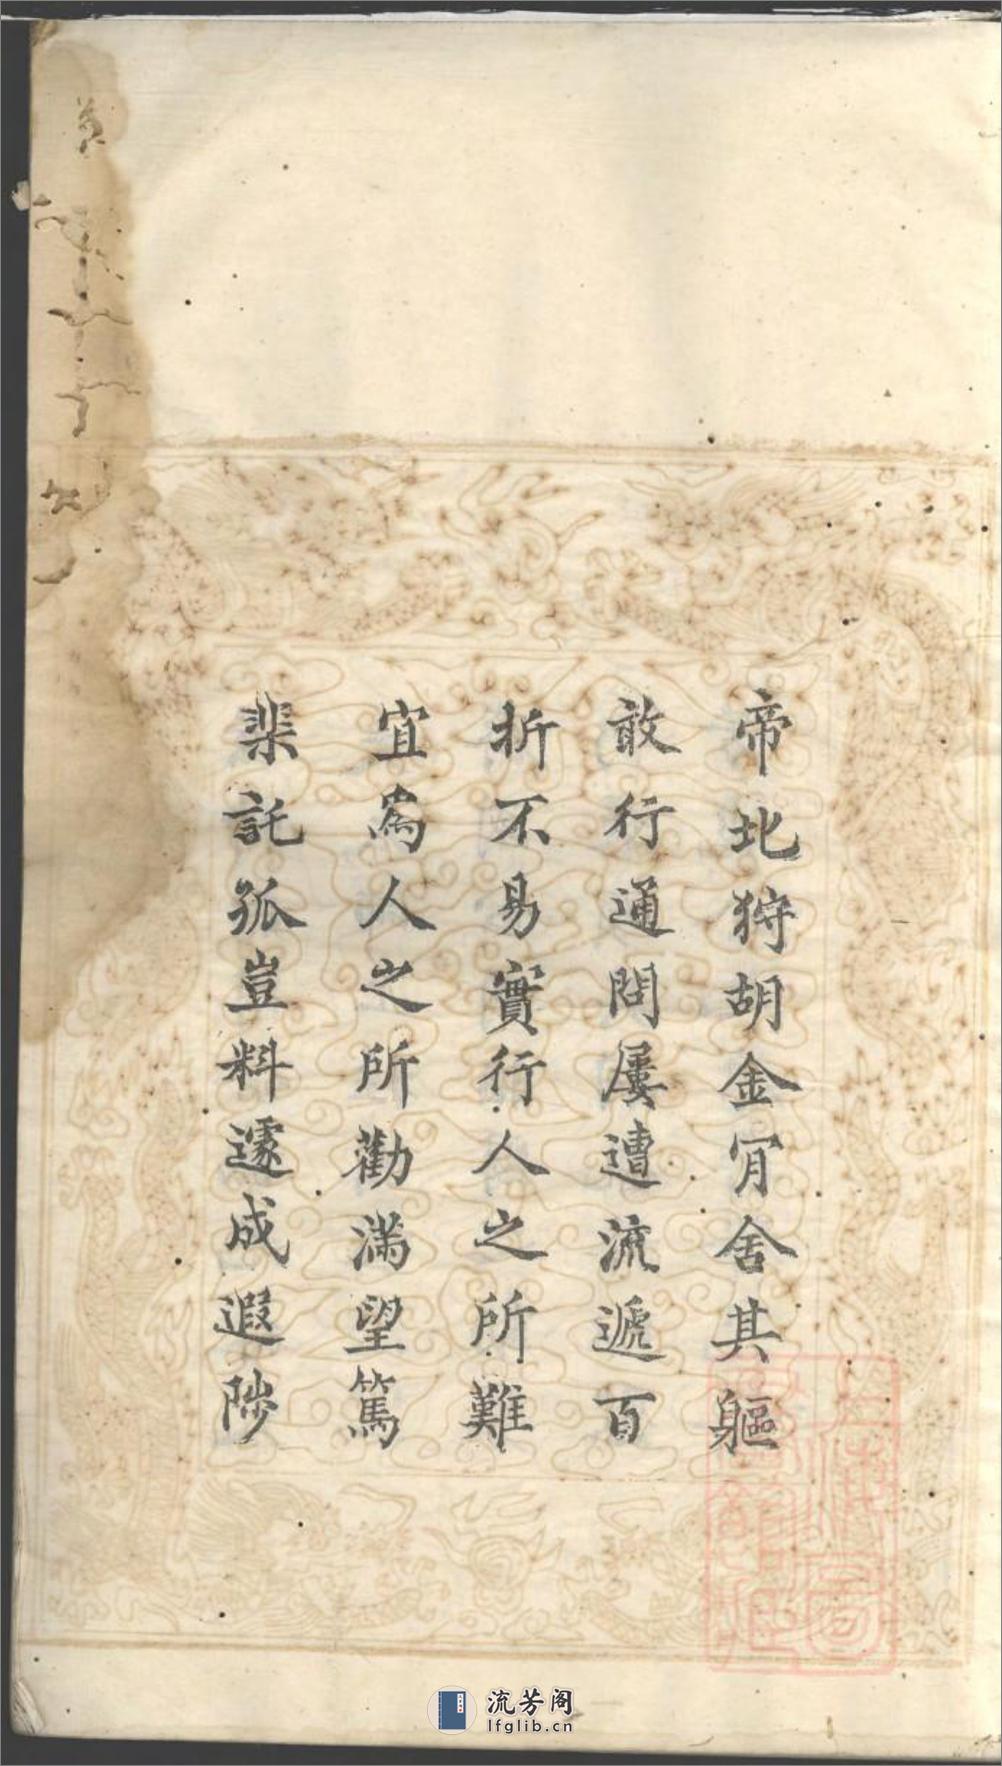 帝北狩胡金肎舍其軀
敢行通問屢遭流遞百
折不易實行人之所難
宜為人之所勸滿望篤
棐託孤豈料遽成遐陟
流芳阁
lfglib.cn